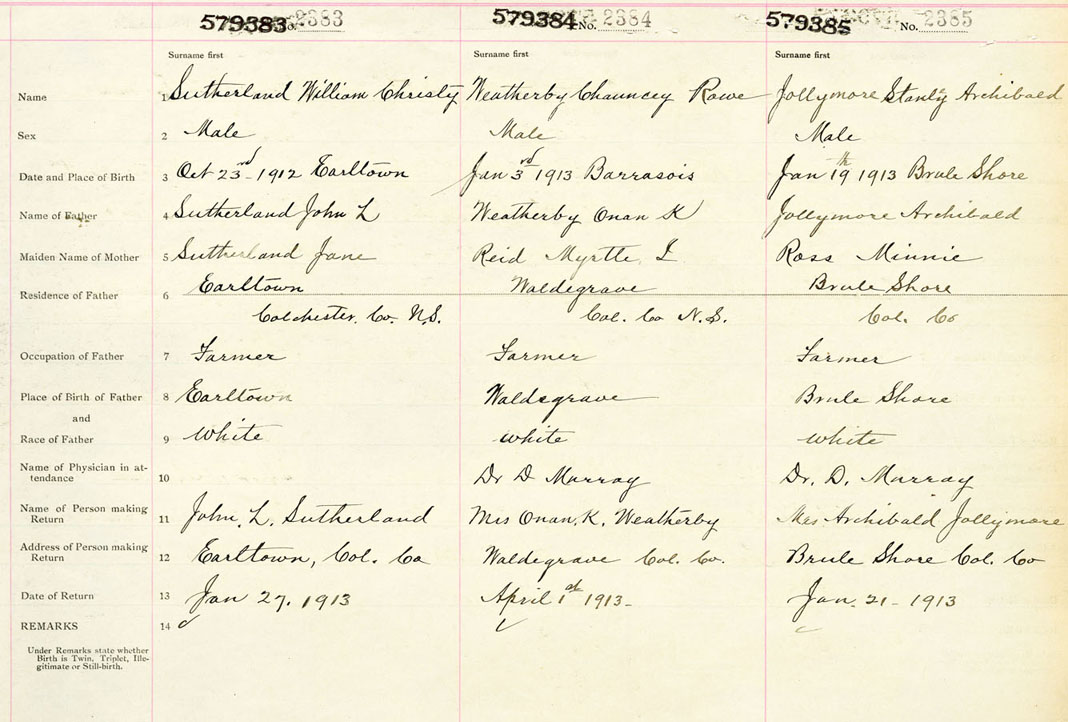 579383 No. 2383 579384 No. 2384 579385 No. 2385
Surname first Surname first Surname first
Name 1 Sutherland William Christy Weatherby Chauncey Rowe Jollymore Stanly Archibald
Sex 2 Male Male Male
Date and Place of Birth 3 Oct 23rd 1912 Earltown Jan 3rd 1913 Barrasois Jan 19th 1913 Brule Shore
Name of Father 4 Sutherland John L Weatherby Onan K Jollymore Archibald
Maiden Name of Mother 5 Sutherland Jane Reid Myrtle I Ross Minnie
Residence of Father 6 Earltown Waldegrave Brule Shore
Colchester Co. N.S. Col. Co N.S. Col. Co
Occupation of Father 7 Farmer Farmer Farmer
Place of Birth of Father 8 Earltown Waldegrave Brule Shore
and
Race of Father 9 White White White
Name of Physician in at-
tendance 10 Dr D Murray Dr. D. Murray
Name of Person making
Return 11 John L. Sutherland Mrs Onan K. Weatherby Mrs Archibald Jollymore
Address of Person making
Return 12 Earltown, Col. Co Waldegrave Col. Co. Brule Shore Col. Co
Date of Return 13 Jan 27, 1913 April 1st 1913- Jan. 21- 1913
REMARKS 14
Under Remarks state whether
Birth is Twin, Triplet, Ille-
gitimate or Still-birth.